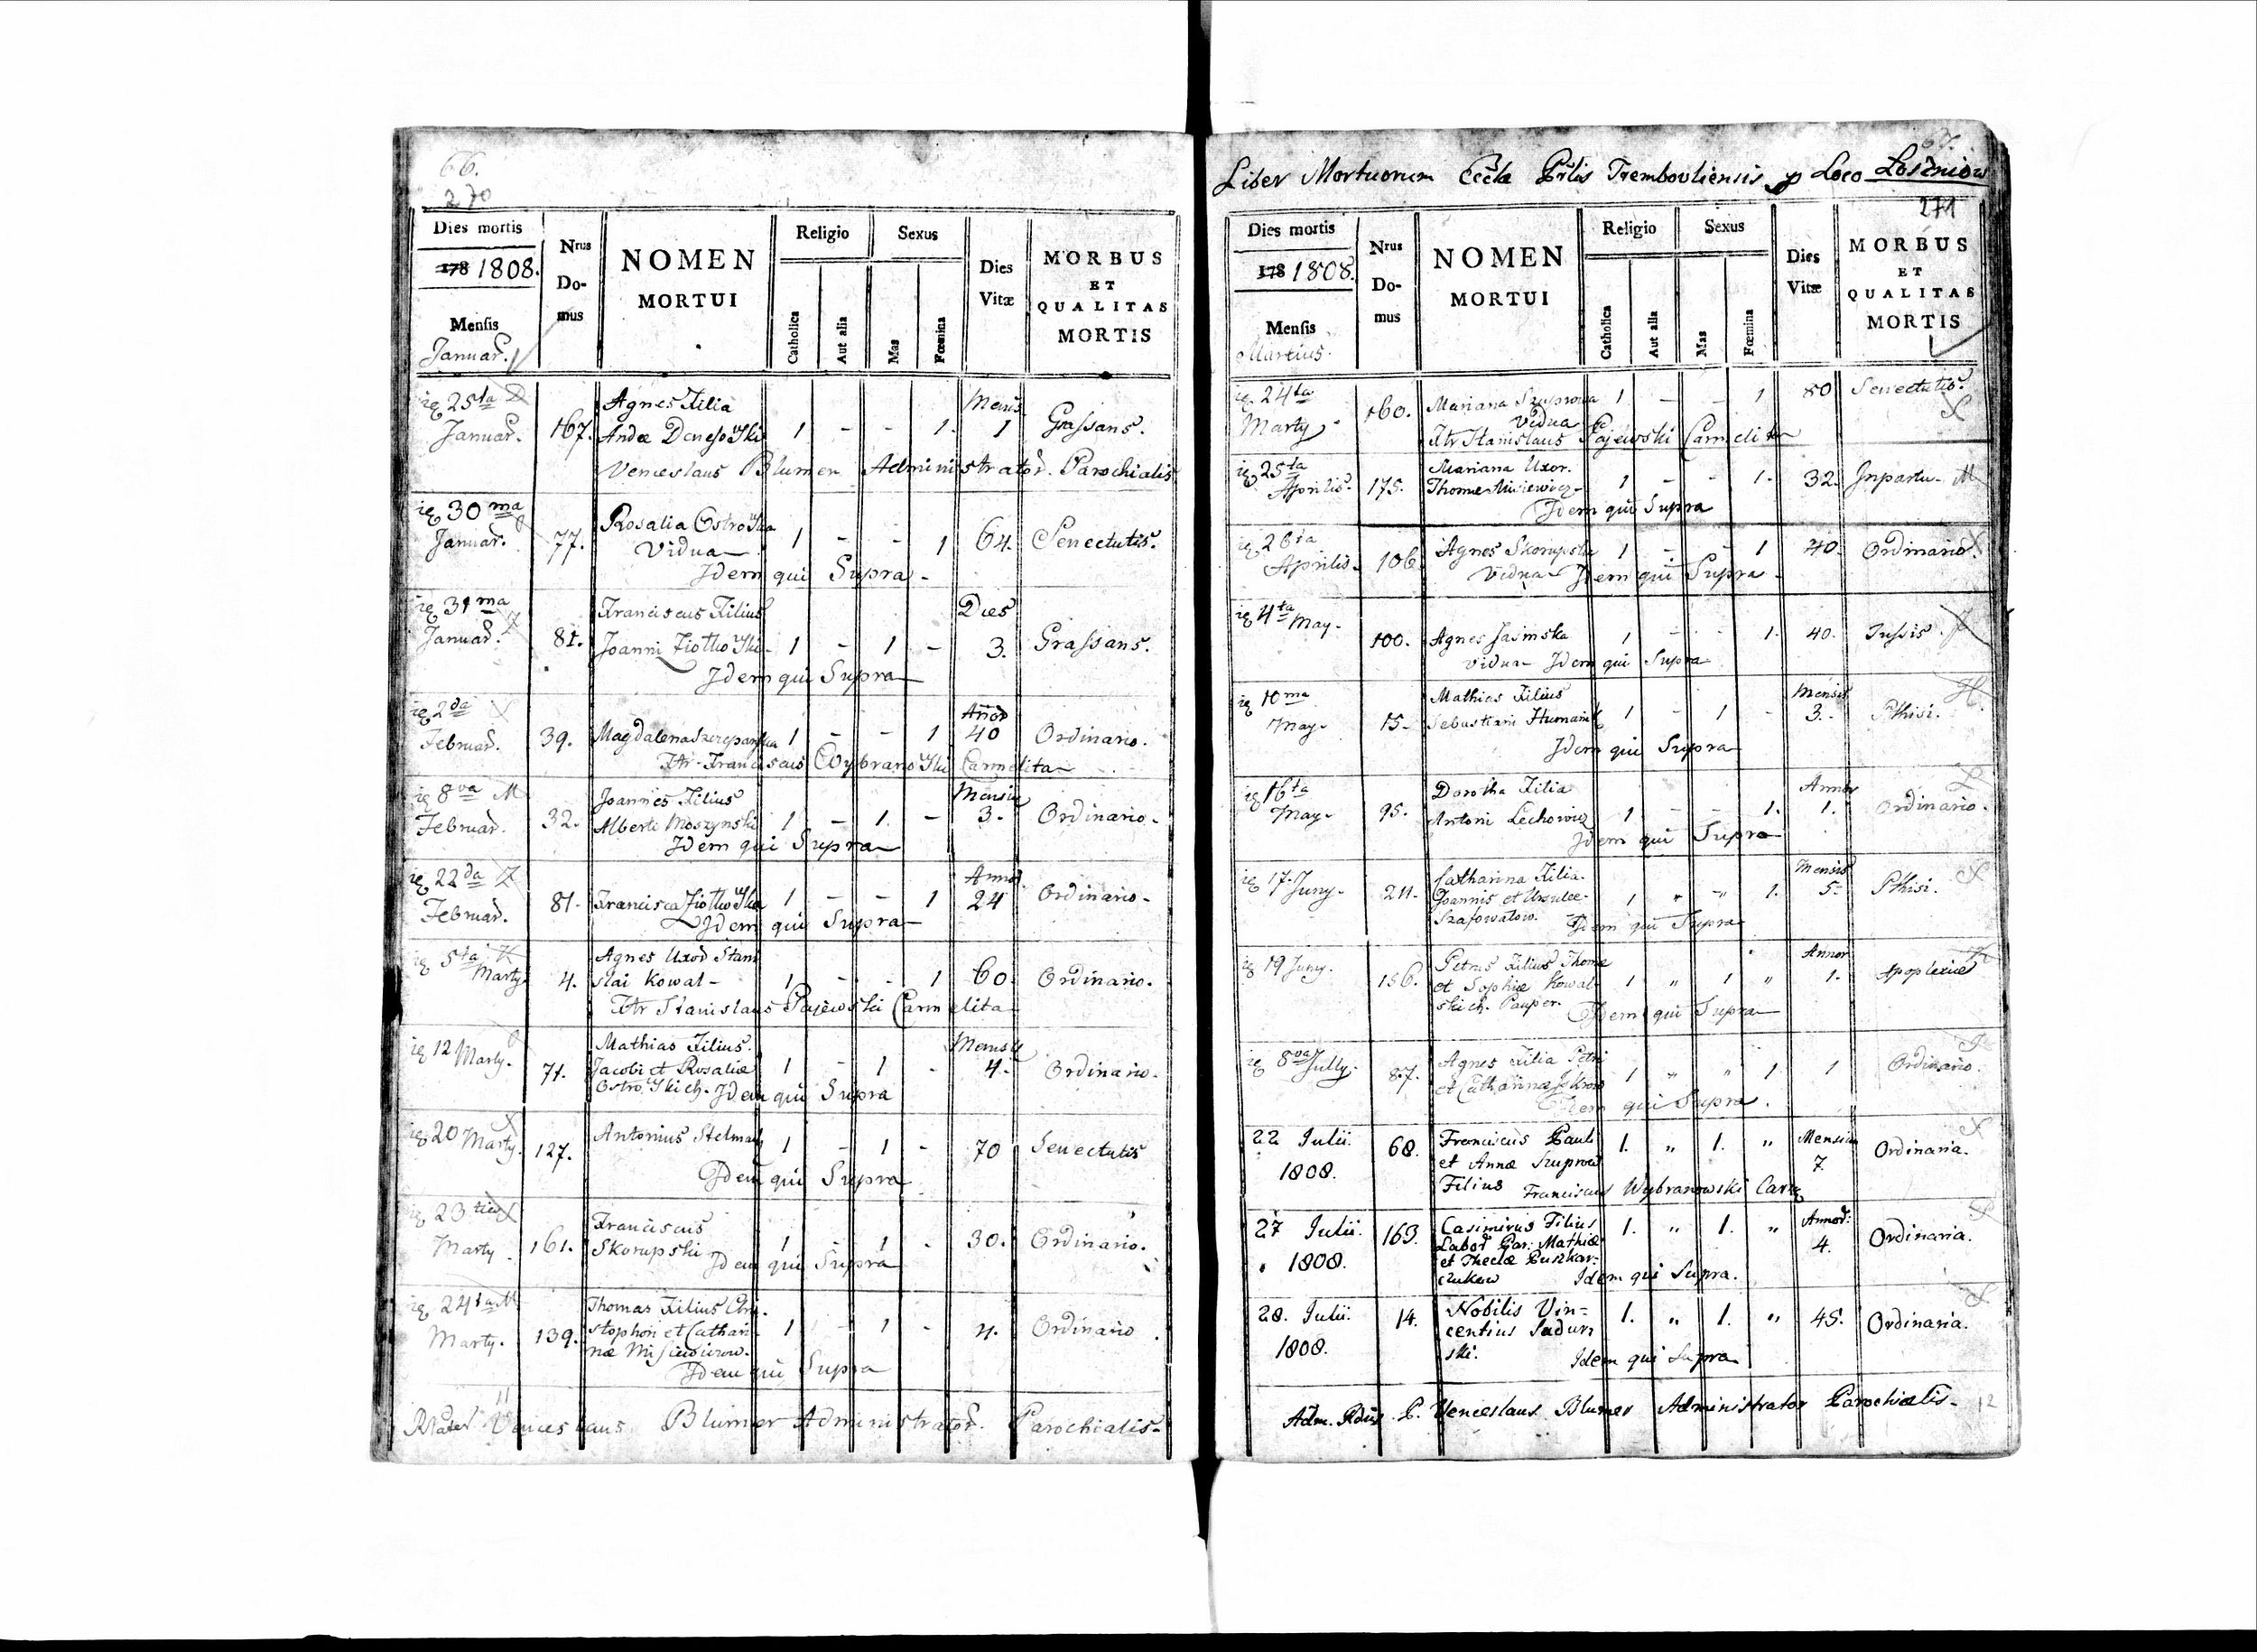 66.
270
Dies mortis
178 1808.
Mensis
Januar.
Nrus Domus
NOMEN
MORTUI
Religio
Catholica
Aut alia
Sexus
Mas
Fœmina
Dies Vitæ
MORBUS
ET
QUALITAS
MORTIS
25ta Januar. 167. Agnes Filia 1 - - 1. Mensis 1 Grassans.
Venceslaus Blumer Administrator Parochialis
30ma Januar. 77. Rosalia Ostrowska Vidua 1 - - 1 64. Senectutis.
Idem qui Supra
31ma Januar. 81. Franciscus Filius Joanni Ziołkowski 1 - 1 - Dies 3. Grassans.
Idem qui Supra
2da Februar. 39. Magdalena Szczepańska 1 - - 1 Annor 40 Ordinario.
Ftr Franciscus Wybranowski Carmelita
8va M Februar. 32. Joannes Filius Alberti Moszynski 1 - 1. - Mensiu 3. Ordinario.
Idem qui Supra
22da Z Februar. 81. Francisca Ziołkowska 1 - - 1 Annor 24 Ordinario.
Idem qui Supra
5ta K Marty 4. Agnes Uxor Stanislai Kowal 1 - - 1 60. Ordinario.
Ftr Stanislaus Gajewski Carmelita
12 Marty. 71. Mathias Filius Jacobi et Rosaliæ Ostrowskich. 1 - 1 - Mensiu 4. Ordinario.
Idem qui Supra
20 Marty. 127. Antonius Stelmach 1 - 1 - 70 Senectutis
Idem qui Supra
23tia Marty. 161. Franciscus Skorupski 1 - 1 - 30. Ordinario.
Idem qui Supra
24ta M Marty. 139. Thomas Filius Christophori et Catharinæ 1 - 1 - 4. Ordinario.
Idem qui Supra
11
Venceslaus Blumer Administrator Parochialis
67.
Liber Mortuorum Eccla Prlis Trembovliensis p Loco Łosźniow
271
Dies mortis
178 1808.
Mensis
Martius.
Nrus Domus
NOMEN
MORTUI
Religio
Catholica
Aut alia
Sexus
Mas
Fœmina
Dies Vitæ
MORBUS
ET
QUALITAS
MORTIS
24ta Marty 160. Mariana Szuprowa Vidua 1 - - 1 80 Senectutis. S
Ftr Stanislaus Gajewski Carmelita
25ta Aprilis. 175. Mariana Uxor Thome 1 - - 1. 32. Inpartu. M
Idem qui Supra
26ta Aprilis. 106 Agnes Skorupska Vidua 1 - - 1 40. Ordinario. S
Idem qui Supra
4ta May. 100. Agnes Jasinska Vidua 1 - - 1. 40. Tussis. J
Idem qui Supra
10ma May. 15. Mathias Filius Sebastiani 1 - 1 - Mensis 3. Pthisi. H
Idem qui Supra
16ta May. 95. Dorotha Filia Antoni Lechowicz 1 - - 1. Annor 1. Ordinario. L
Idem qui Supra
17. Juny. 211. Catharina Filia Joannis et Ursulæ 1 " " 1. Mensis 5. Pthisi. S
Idem qui Supra
19 Juny. 156. Petrus Filius Thome et Sophiæ Kowalskich. Pauper. 1 " 1 " Annor 1. Apoplexiæ K
Idem qui Supra
8va Jully. 87. Agnes Filia Petri et Catharinæ 1 " " 1 1 Ordinario.
Idem qui Supra.
22 Julii. 1808. 68. Franciscus Pauli et Annæ Szuprow Filius 1. " 1. " Mensiu 7. Ordinaria. S
Franciscus Wybranowski Carm
27 Julii. 1808. 163. Casimirus Filius Labor. Par: Mathiæ et Theclæ Puszkarczukow 1. " 1. " Annor: 4. Ordinaria. P
Idem qui Supra.
28. Julii. 1808. 14. Nobilis Vincentius Sadurski. 1. " 1. " 45. Ordinaria. S
Idem qui Supra
Adm. Rdus P. Venceslaus Blumer Administrator Parochialis. 12